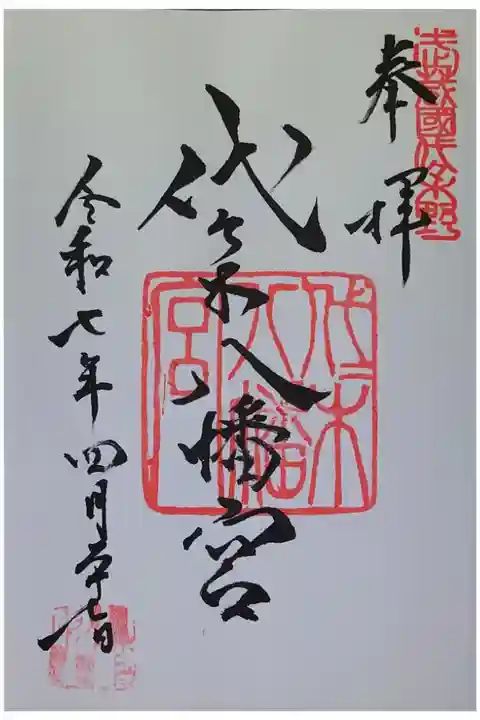 武蔵國代々木野
奉拝
代々木八幡宮
代々木
八幡
宮
令和七年四月廿七日